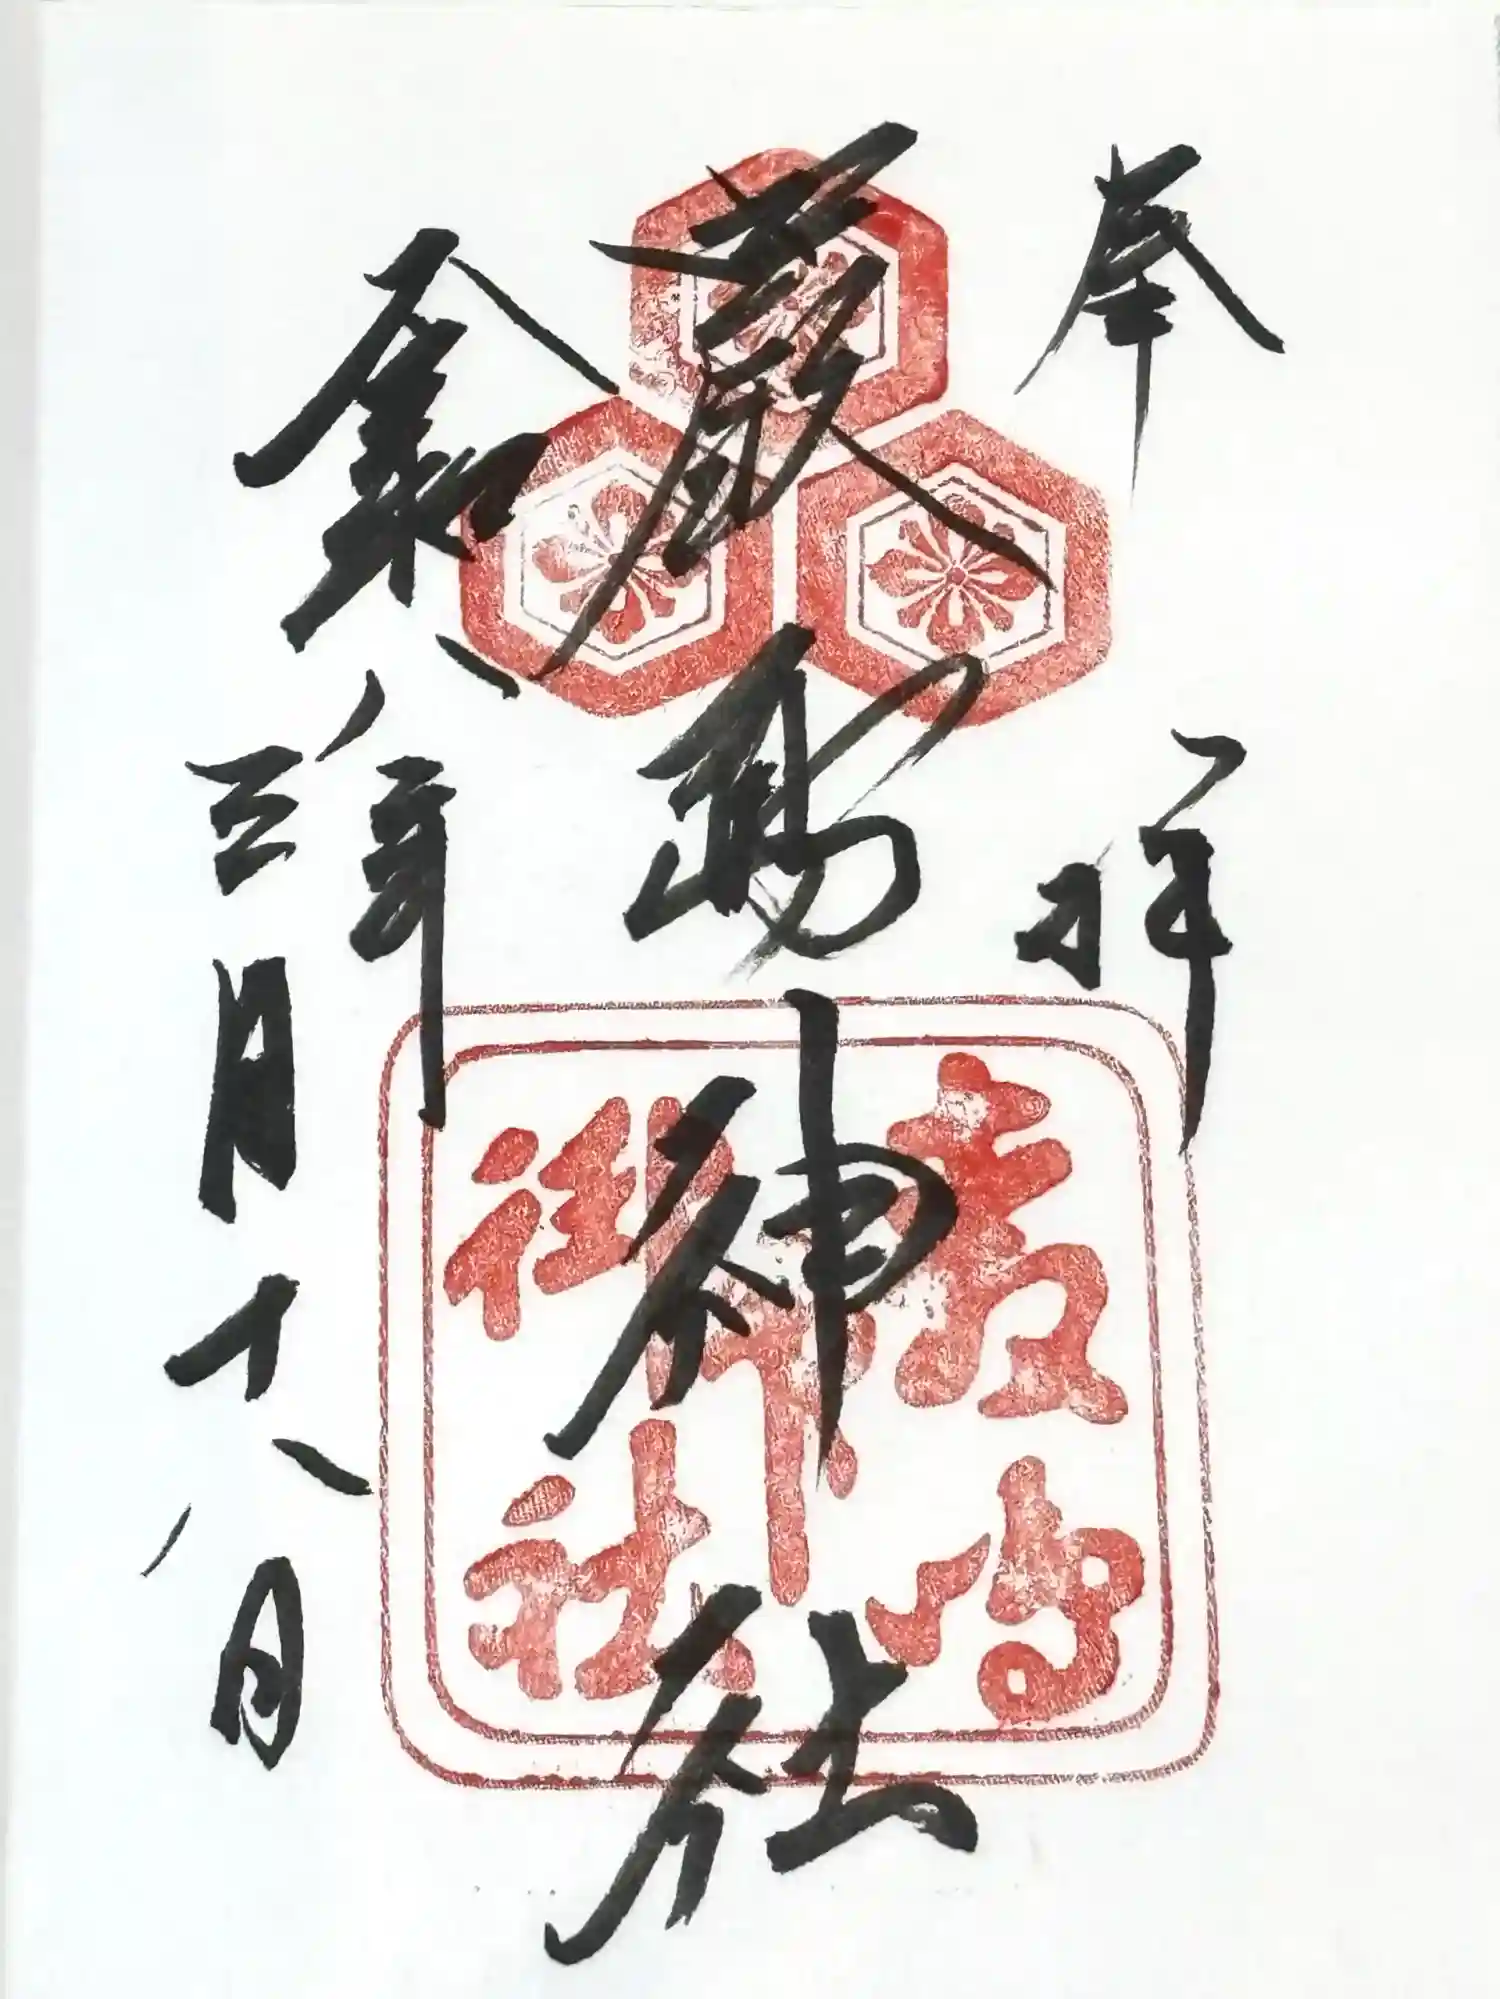 奉拝
厳島神社
令和八年
三月十八日
嚴島
神社